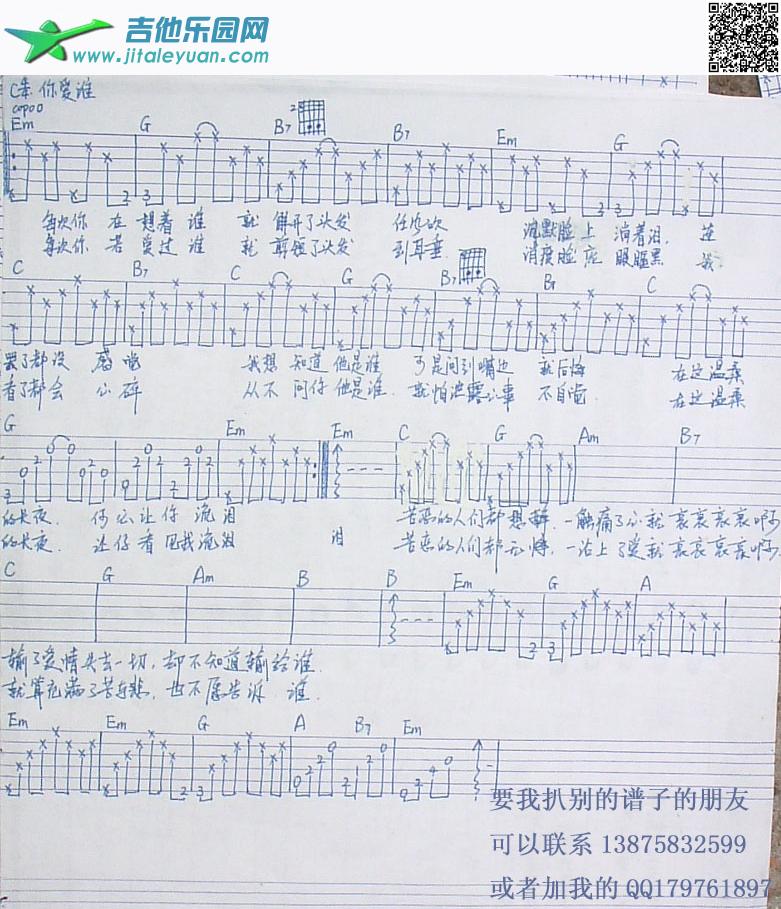 吉他乐园网
www.jitaleyuan.com
C调 你爱谁
capo 0
Em G B7 B7 Em G
每次你 在 想着 谁 就 解开了头发 任凭吹 沉默脸上 淌着泪. 连
每次你 若 爱过 谁 就 剪短了头发 到耳垂. 消瘦脸庞 眼眶黑 我
C B7 C G B7 B7 C
罢了都没 感觉 我想 知道 他是谁 可是问到嘴边 就后悔 在这温柔
看了都会 心碎 从不 问你 他是谁. 就怕泄露心事 不自觉. 在这温柔
G Em Em C G Am B7
的长夜. 何必让你 流泪 苦恋的人们都想醉. 一触痛了心就哀哀哀哀啊
的长夜. 让你看见我流泪 泪 苦恋的人们都无悔. 一沾上了爱就哀哀哀哀啊
C G Am B B Em G A
输了爱情失去一切, 却不知道输给谁.
就算充满了苦与悲, 也不愿告诉 谁.
Em Em G A B7 Em
要我扒别的谱子的朋友
可以联系 13875832599
或者加我的 QQ179761897